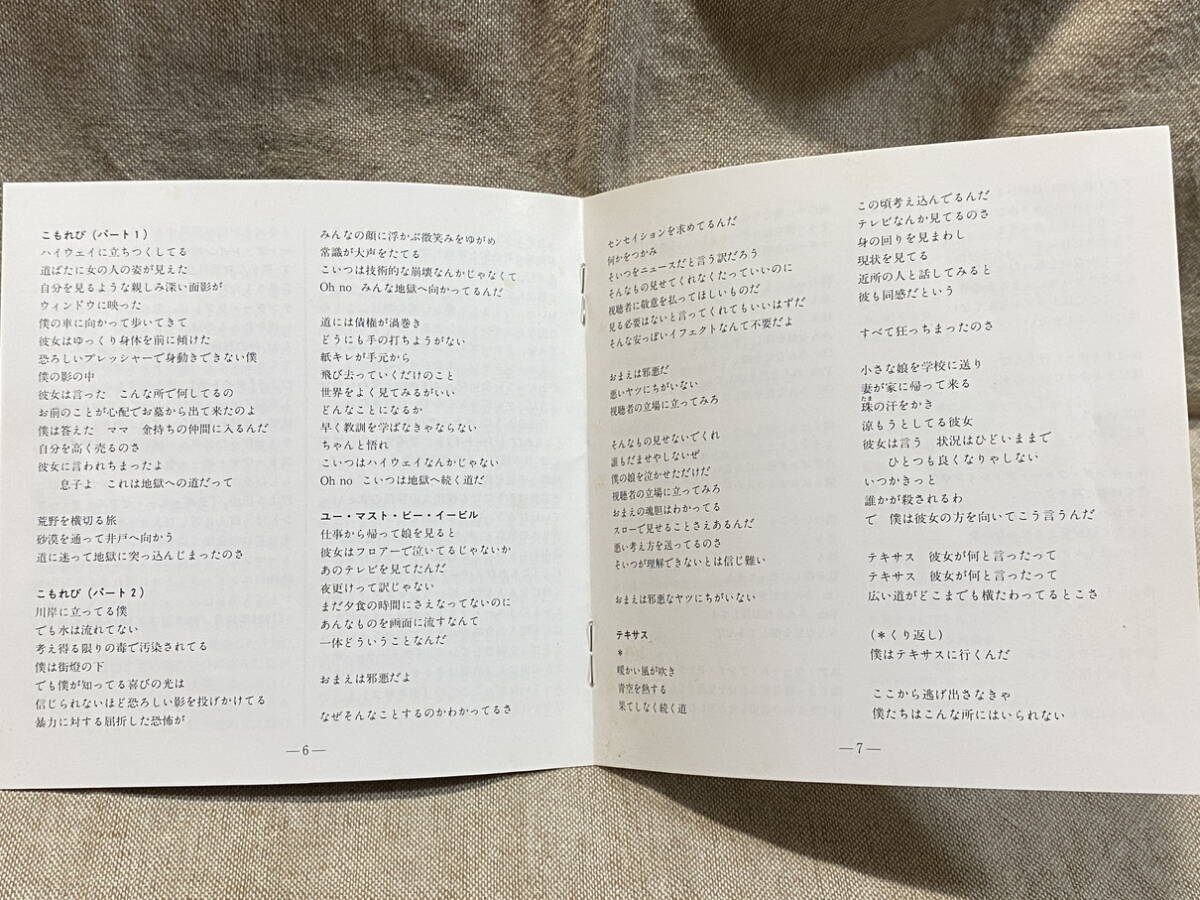 こもれび（パート1）
ハイウェイに立ちつくしてる
道ばたに女の人の姿が見えた
自分を見るような親しみ深い面影が
ウィンドウに映った
僕の車に向かって歩いてきて
彼女はゆっくり身体を前に傾けた
恐ろしいプレッシャーで身動きできない僕
僕の影の中
彼女は言った　こんな所で何してるの
お前のことが心配でお墓から出て来たのよ
僕は答えた　ママ　金持ちの仲間に入るんだ
自分を高く売るのさ
彼女に言われちまったよ
息子よ　これは地獄への道だって
荒野を横切る旅
砂漠を通って井戸へ向かう
道に迷って地獄に突っ込んじまったのさ
こもれび（パート2）
川岸に立ってる僕
でも水は流れてない
考え得る限りの毒で汚染されてる
僕は街燈の下
でも僕が知ってる喜びの光は
信じられないほど恐ろしい影を投げかけてる
暴力に対する屈折した恐怖が
みんなの顔に浮かぶ微笑みをゆがめ
常識が大声をたてる
こいつは技術的な崩壊なんかじゃなくて
Oh no　みんな地獄へ向かってるんだ
道には債権が渦巻き
どうにも手の打ちようがない
紙キレが手元から
飛び去っていくだけのこと
世界をよく見てみるがいい
どんなことになるか
早く教訓を学ばなきゃならない
ちゃんと悟れ
こいつはハイウェイなんかじゃない
Oh no　こいつは地獄へ続く道だ
ユー・マスト・ビー・イービル
仕事から帰って娘を見ると
彼女はフロアーで泣いてるじゃないか
あのテレビを見てたんだ
夜更けって訳じゃない
まだ夕食の時間にさえなってないのに
あんなものを画面に流すなんて
一体どういうことなんだ
おまえは邪悪だよ
なぜそんなことするのかわかってるさ
—6—
センセイションを求めてるんだ
何かをつかみ
そいつをニュースだと言う訳だろう
そんなもの見せてくれなくたっていいのに
視聴者に敬意を払ってほしいものだ
見る必要はないと言ってくれてもいいはずだ
そんな安っぽいイフェクトなんて不要だよ
おまえは邪悪だ
悪いヤツにちがいない
視聴者の立場に立ってみろ
そんなもの見せないでくれ
誰もだませやしないぜ
僕の娘を泣かせただけだ
視聴者の立場に立ってみろ
おまえの魂胆はわかってる
スローで見せることさえあるんだ
悪い考え方を送ってるのさ
そいつが理解できないとは信じ難い
おまえは邪悪なヤツにちがいない
テキサス
＊
暖かい風が吹き
青空を熱する
果てしなく続く道
この頃考え込んでるんだ
テレビなんか見てるのさ
身の回りを見まわし
現状を見てる
近所の人と話してみると
彼も同感だという
すべて狂っちまったのさ
小さな娘を学校に送り
妻が家に帰って来る
たま
珠の汗をかき
涼もうとしてる彼女
彼女は言う　状況はひどいままで
ひとつも良くなりゃしない
いつかきっと
誰かが殺されるわ
で　僕は彼女の方を向いてこう言うんだ
テキサス　彼女が何と言ったって
テキサス　彼女が何と言ったって
広い道がどこまでも横たわってるとこさ
（＊くり返し）
僕はテキサスに行くんだ
ここから逃げ出さなきゃ
僕たちはこんな所にはいられない
—7—